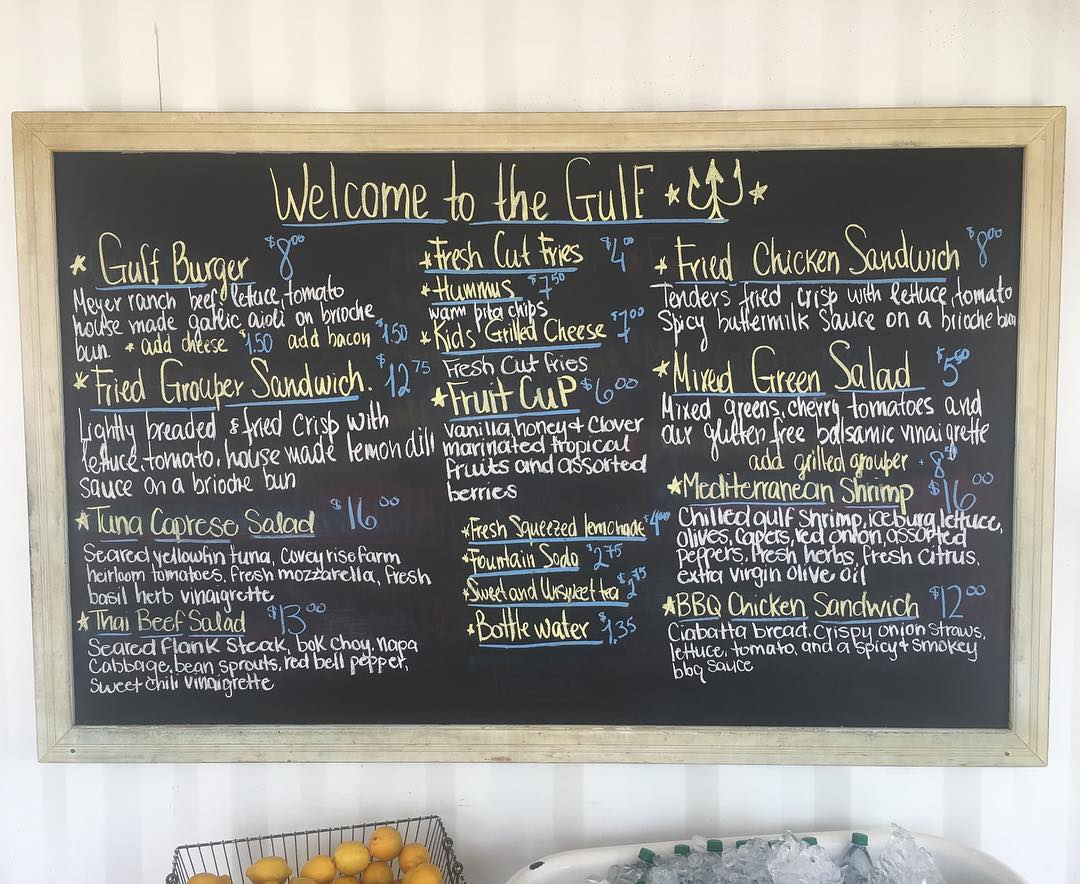 Welcome to the Gulf
* Gulf Burger $8.00
Meyer ranch beef, lettuce, tomato
house made garlic aioli on brioche
bun * add cheese $1.50 add bacon $1.50
* Fried Grouper Sandwich. $12.75
Lightly breaded & fried crisp with
lettuce, tomato, house made lemon dill
sauce on a brioche bun
* Tuna Caprese Salad $16.00
Seared yellowfin tuna, Covey rise farm
heirloom tomatoes, fresh mozzarella, fresh
basil herb vinaigrette
* Thai Beef Salad $13.00
Seared Flank Steak, bok choy, napa
Cabbage, bean sprouts, red bell pepper,
Sweet chili vinaigrette
* Fresh Cut Fries $4.00
* Hummus $7.50
warm pita chips
* Kids' Grilled Cheese $7.00
Fresh Cut fries
* Fruit Cup $6.00
vanilla, honey & Clover
marinated tropical
fruits and assorted
berries
* Fresh Squeezed lemonade $4.00
* Fountain Soda $2.75
* Sweet and Unsweet tea
* Bottle water $1.35
* Fried Chicken Sandwich $8.00
Tenders fried crisp with lettuce, tomato
Spicy buttermilk sauce on a brioche bun
* Mixed Green Salad
Mixed greens, cherry tomatoes and
our gluten free balsamic vinaigrette
add grilled grouper
* Mediterranean Shrimp $16.00
Chilled gulf shrimp, iceburg lettuce,
olives, capers, red onion, assorted
peppers, fresh herbs, fresh citrus,
extra virgin olive oil
* BBQ Chicken Sandwich $12.00
Ciabatta bread, Crispy onion straws,
lettuce, tomato, and a spicy & smokey
bbq sauce